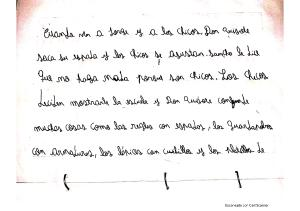 Cuando ven a Sonse y a los chicos. Don quisote
saca su espada y los chicos se asustan. Sancho le dice
que no haga nada porque son chicos. Los chicos
deciden mostrarle la escuela y Don Quisote confunde
muchas cosas como las reglas con espadas, los guardapolvos
con armaduras, los lápices con cuchillos y los pizarrones de
Escaneado con CamScanner